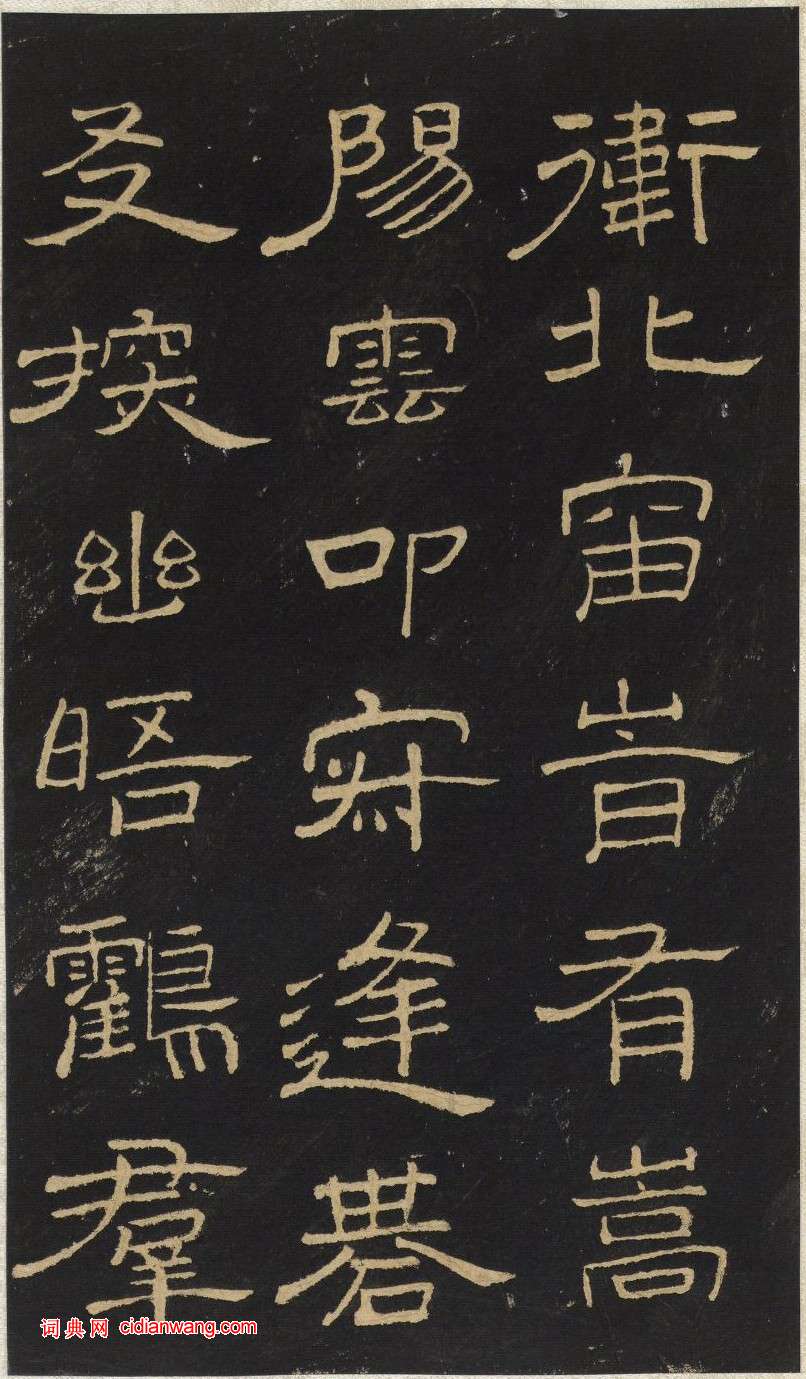 衛北旹有嵩
陽雲叩寂逢碁
叟探幽晤鸖羣
词典网 cidianwang.com